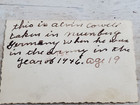 this is Alvin Cowell
taken in Nurnberg
Germany when he was
in the army in the
years of 1946. age 19